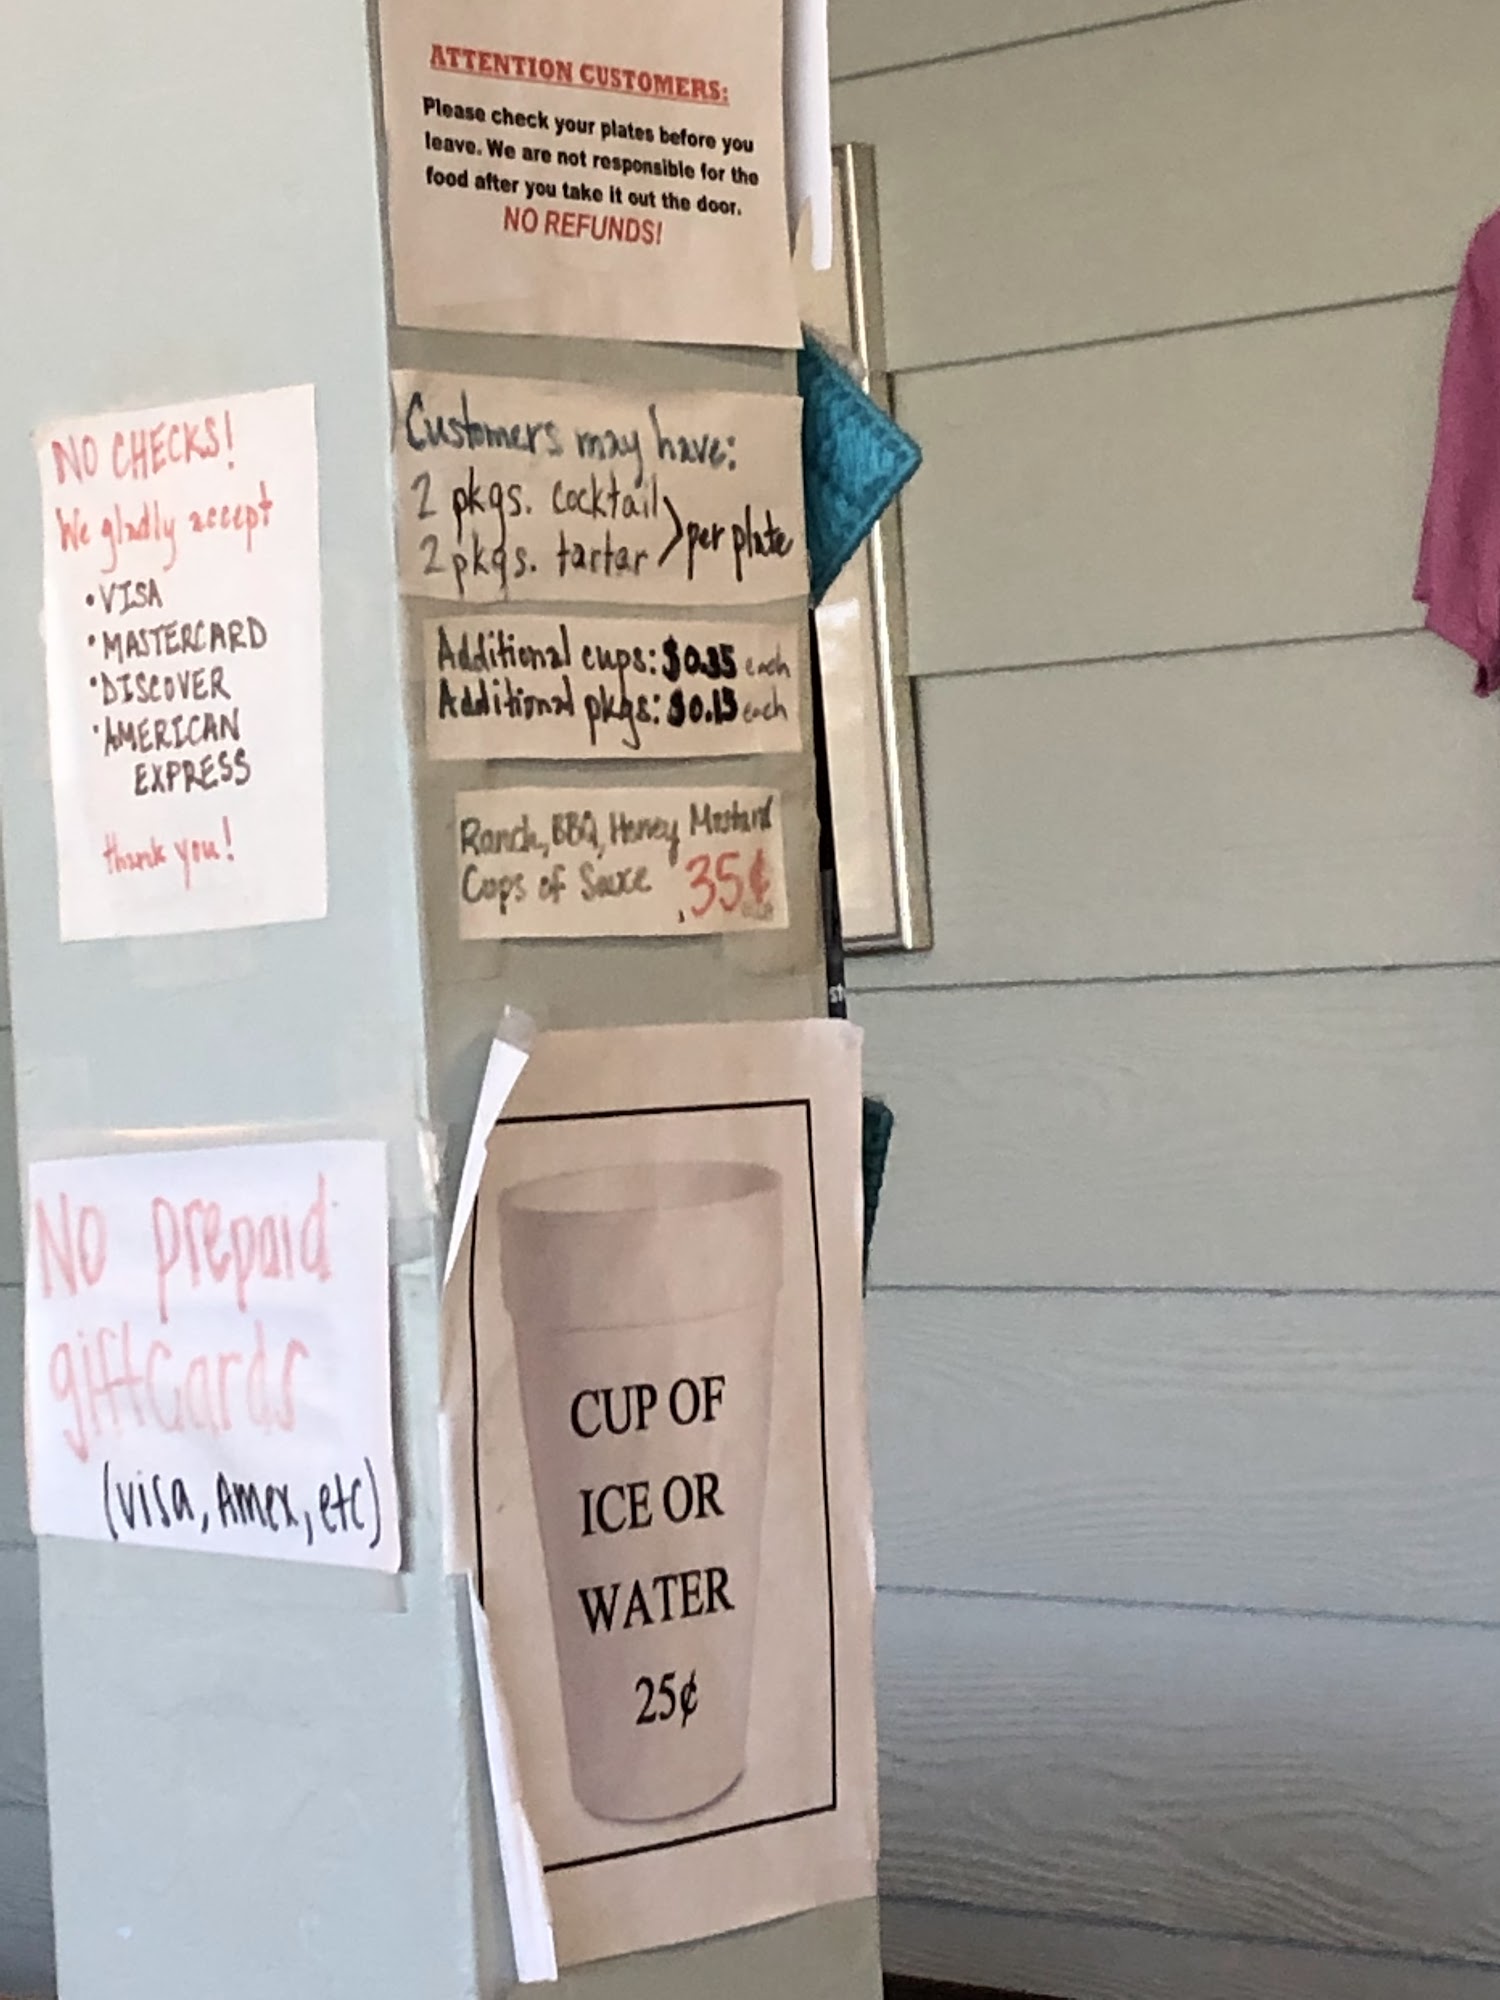 ATTENTION CUSTOMERS:
Please check your plates before you
leave. We are not responsible for the
food after you take it out the door.
NO REFUNDS!
NO CHECKS!
We gladly accept
•VISA
•MASTERCARD
•DISCOVER
•AMERICAN
EXPRESS
thank you!
Customers may have:
2 pkgs. cocktail
2 pkgs. tartar > per plate
Additional cups: $0.35 each
Additional pkgs: $0.15 each
Ranch, BBQ, Honey Mustard
Cups of Sauce .35¢
No prepaid
giftcards
(visa, Amex, etc)
CUP OF
ICE OR
WATER
25¢